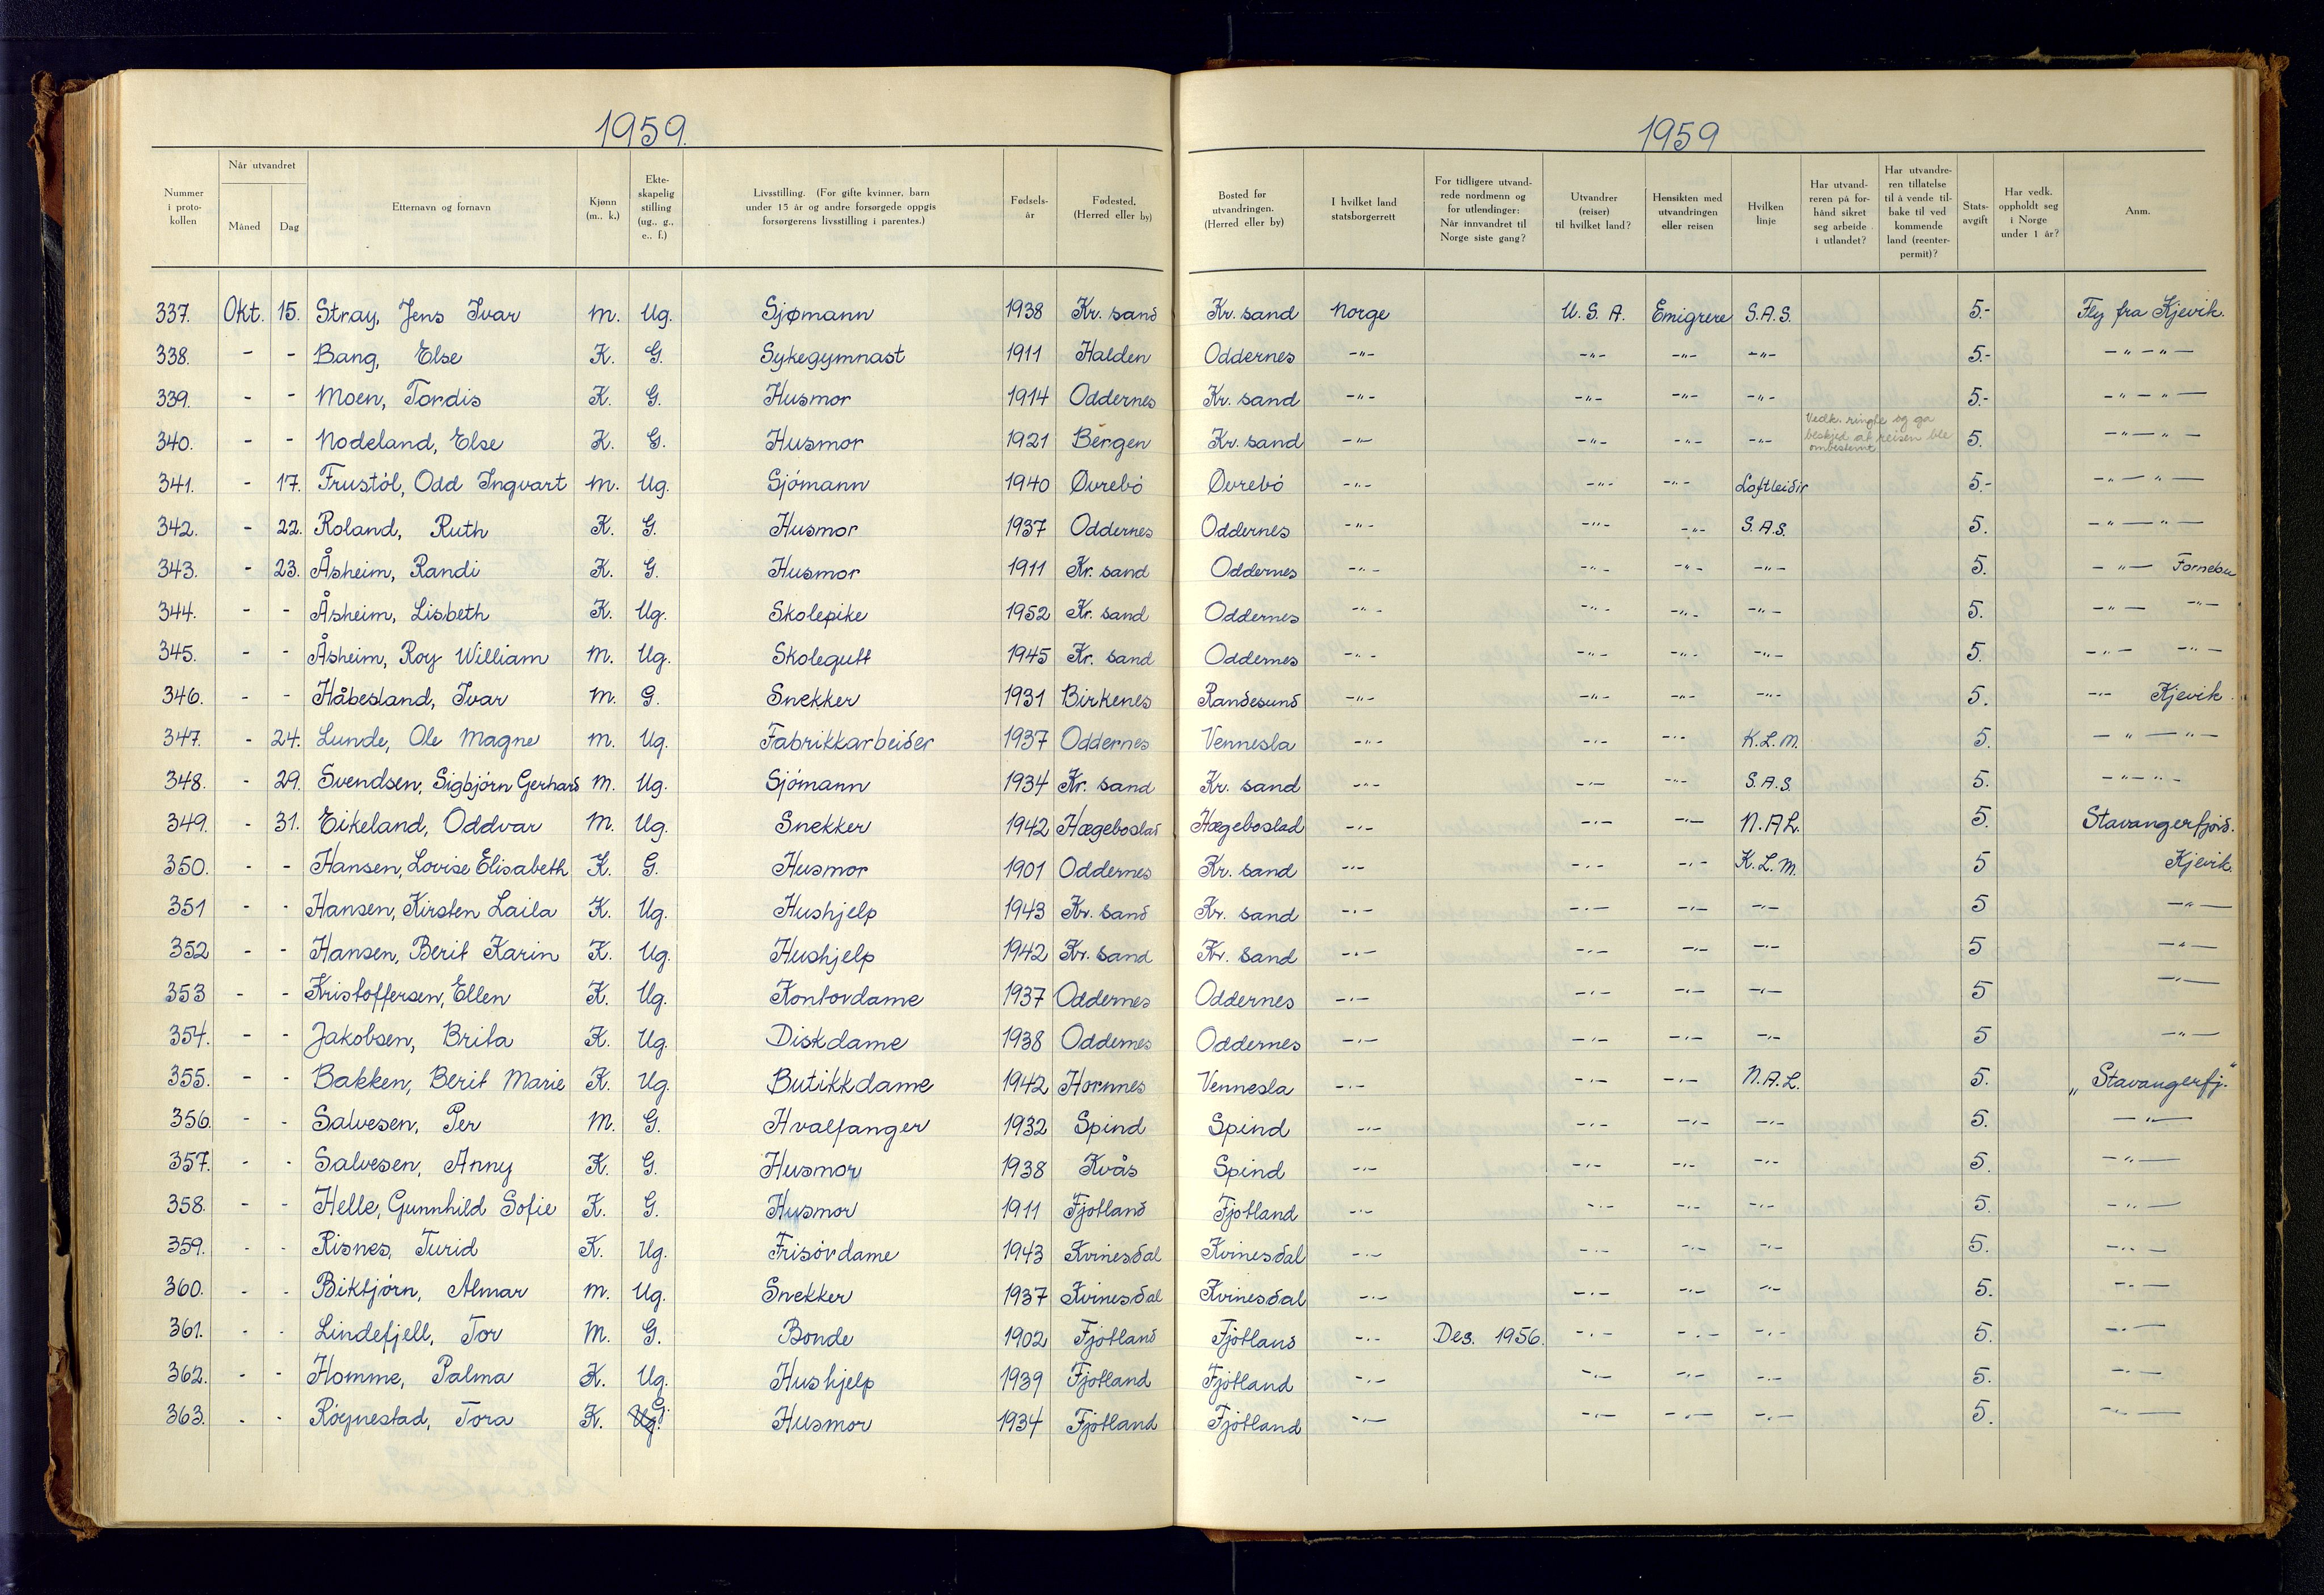 1959.
1959
Nummer i proto- kollen | Når utvandret Måned Dag | Etternavn og fornavn | Kjønn (m., k.) | Ekte- skapelig stilling (ug., g., e., f.) | Livsstilling. (For gifte kvinner, barn under 15 år og andre forsørgede oppgis forsørgerens livsstilling i parentes.) | Fødsels- år | Fødested. (Herred eller by) | Bosted før utvandringen. (Herred eller by) | I hvilket land statsborgerrett | For tidligere utvand- rede nordmenn og for utlendinger: Når innvandret til Norge siste gang? | Utvandrer (reiser) til hvilket land? | Hensikten med utvandringen eller reisen | Hvilken linje | Har utvand- reren på for- hånd sikret seg arbeide i utlandet? | Har utvandre- ren tillatelse til å vende til- bake til ved kommende land (reenter- permit)? | Stats- avgift | Har vedk. oppholdt seg i Norge under 1 år? | Anm.
337. Okt. 15. Stray, Jens Ivar m. Ug. Sjømann 1938 Kr. sand Kr. sand Norge U.S.A. Emigrere S.A.S. 5.- Fly fra Kjevik.
338. - - Bang, Else K. G. Sykegymnast 1911 Halden Oddernes -"- -"- -"- -"- 5.- -"-"-
339. - - Moen, Tordis K. G. Husmor 1914 Oddernes Kr. sand -"- -"- -"- -"- 5.- -"-"-
340. - - Nodeland, Else K. G. Husmor 1921 Bergen Kr. sand -"- -"- -"- -"- Vedk. ringte og ga beskjed at reisen ble ombestemt 5. -"-"-
341. - 17. Frustöl, Odd Ingvart m. Ug. Sjömann 1940 Øvrebö Øvrebö -"- -"- -"- Loftleidir 5.- -"-"-
342. - 22. Roland, Ruth K. G. Husmor 1937 Oddernes Oddernes -"- -"- -"- S.A.S. 5. -"-"-
343. - 23. Åsheim, Randi K. G. Husmor 1911 Kr. sand Oddernes -"- -"- -"- -"- 5. -"- Fornebu
344. - - Åsheim, Lisbeth K. Ug. Skolepike 1952 Kr. sand Oddernes -"- -"- -"- -"- 5. -"- -"-
345. - - Åsheim, Roy William m. Ug. Skolegutt 1945 Kr. sand Oddernes -"- -"- -"- -"- 5. -"- -"-
346. - - Håbesland, Ivar m. G. Snekker 1931 Birkenes Randesund -"- -"- -"- -"- 5. -"- Kjevik.
347. - 24. Lunde, Ole Magne m. Ug. Fabrikkarbeider 1937 Oddernes Vennesla -"- -"- -"- K.L.M. 5. -"-"-
348. - 29. Svendsen, Sigbjörn Gerhard m. Ug. Sjömann 1934 Kr. sand Kr. sand -"- -"- -"- S.A.S. 5. -"-"-
349. - 31. Eikeland, Oddvar m. Ug. Snekker 1942 Hægebostad Hægebostad -"- -"- -"- N.A.L. 5. Stavangerfjord.
350. - - Hansen, Lovise Elisabeth K. G. Husmor 1901 Oddernes Kr. sand -"- -"- -"- K.L.M. 5 Kjevik.
351 - - Hansen, Kirsten Laila K. Ug. Hushjelp 1943 Kr. sand Kr. sand -"- -"- -"- -"- 5 -"-
352 - - Hansen, Berit Karin K. Ug. Hushjelp 1942 Kr. sand Kr. sand -"- -"- -"- -"- 5 -"-
353 - - Kristoffersen, Ellen K. Ug. Kontordame 1937 Oddernes Oddernes -"- -"- -"- -"- 5 -"-
354. - - Jakobsen, Brita K. Ug. Diskdame 1938 Oddernes Oddernes -"- -"- -"- -"- 5 -"-
355. - - Bakken, Berit Marie K. Ug. Butikkdame 1942 Hornnes Vennesla -"- -"- -"- N.A.L. 5. „Stavangerfj."
356. - - Salvesen, Per m. G. Hvalfanger 1932 Spind Spind -"- -"- -"- -"- 5. -"-
357. - - Salvesen, Anny K. G. Husmor 1938 Kvås Spind -"- -"- -"- -"- 5. -"-
358. - - Helle, Gunnhild Sofie K. G. Husmor 1911 Fjotland Fjotland -"- -"- -"- -"- 5. -"-
359. - - Risnes, Turid K. Ug. Frisördame 1943 Kvinesdal Kvinesdal -"- -"- -"- -"- 5. -"-
360. - - Biktjörn, Almar m. Ug. Snekker 1937 Kvinesdal Kvinesdal -"- -"- -"- -"- 5. -"-
361. - - Lindefjell, Tor m. G. Bonde 1902 Fjotland Fjotland -"- Des. 1956. -"- -"- -"- 5. -"-
362. - - Homme, Palma K. Ug. Hushjelp 1939 Fjotland Fjotland -"- -"- -"- -"- 5. -"-
363. - - Röynestad, Tora K. Ug. G. Husmor 1934 Fjotland Fjotland -"- -"- -"- -"- 5. -"-